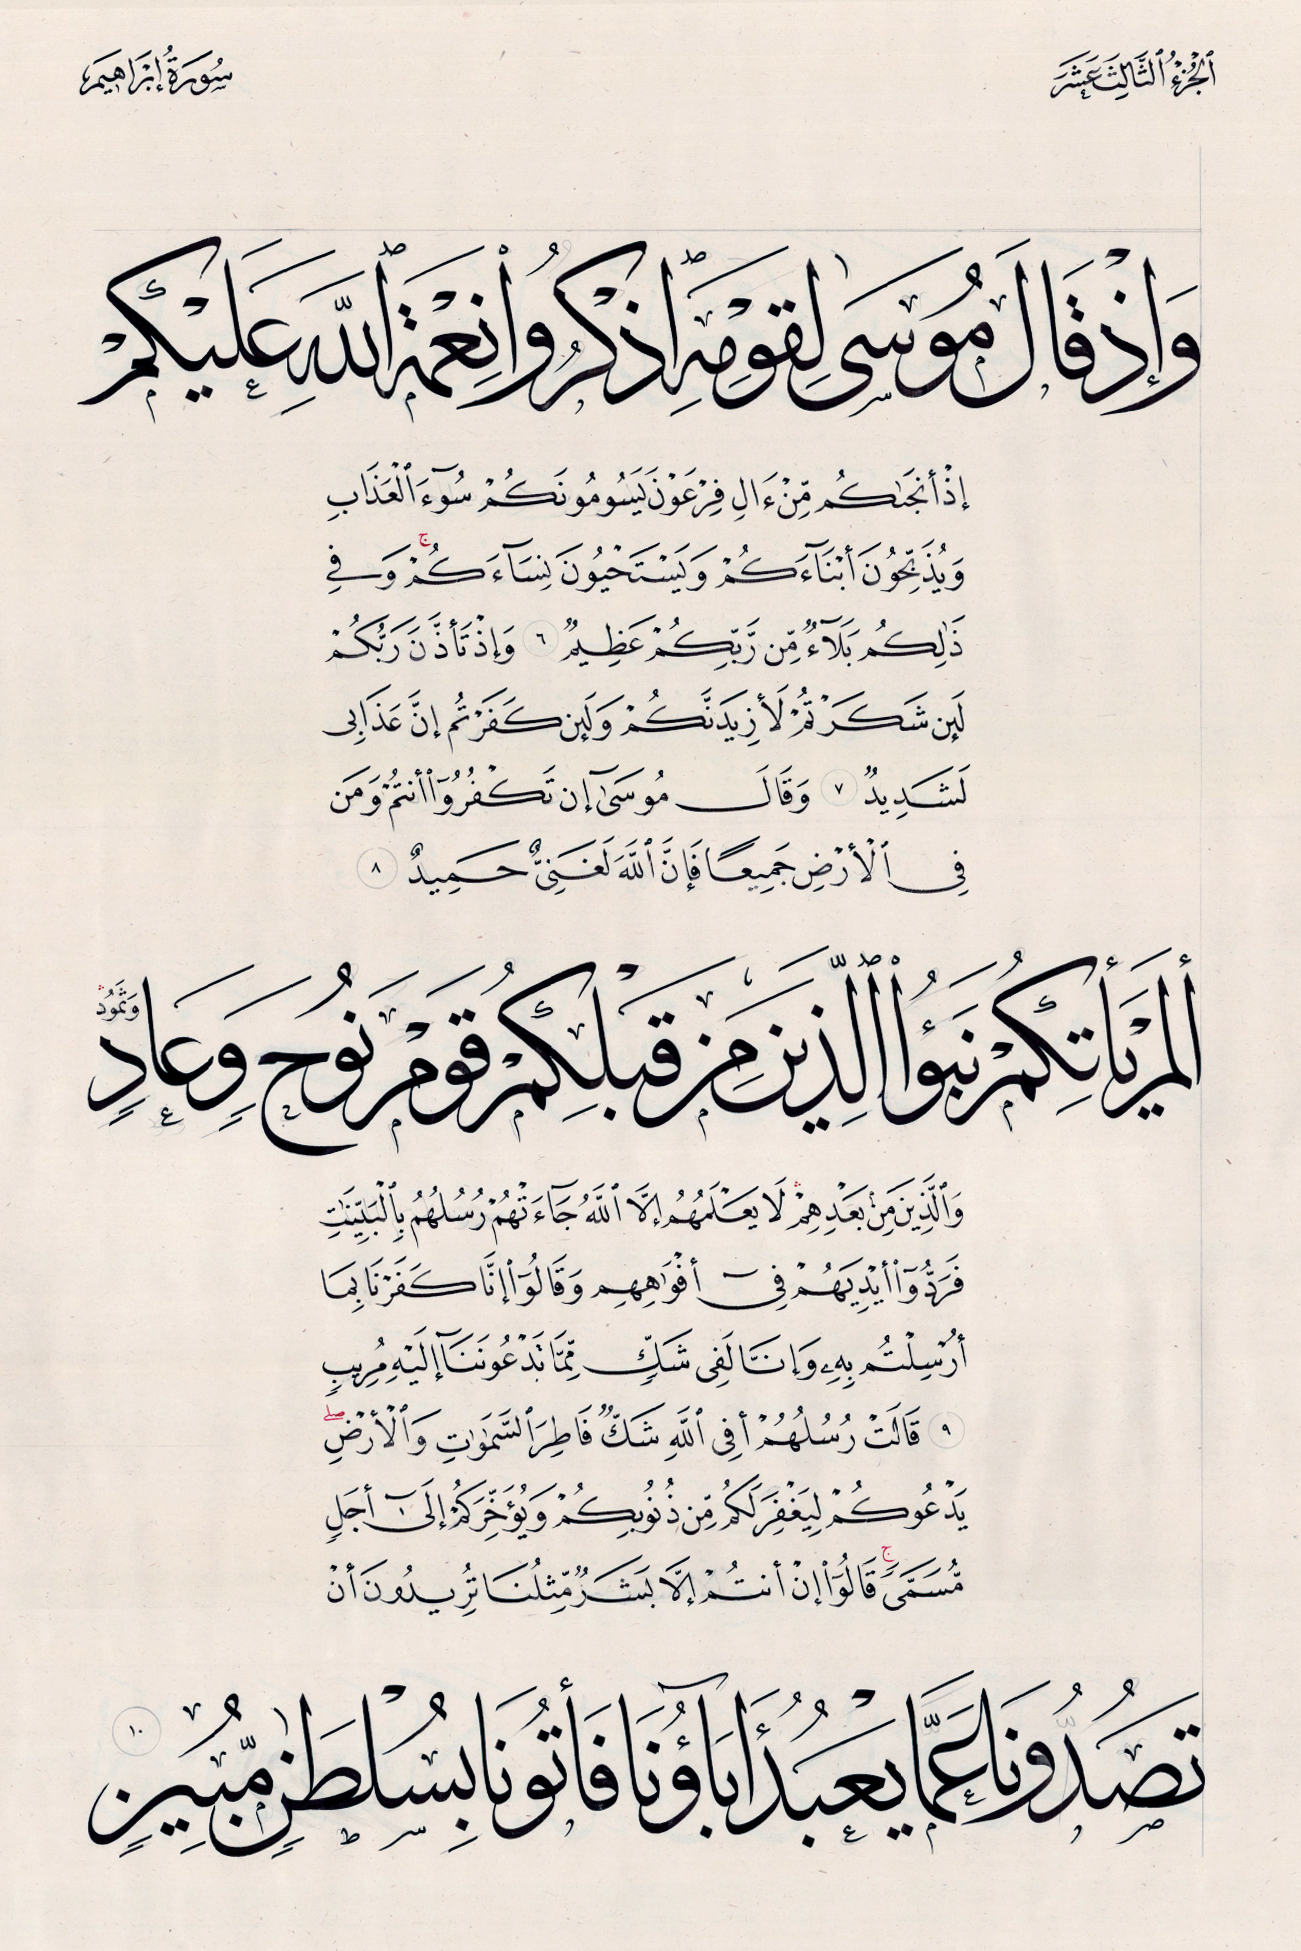 ٱلْجُزْءُ ٱلثَّالِثَ عَشَرَ
سُورَةُ إِبْرَاهِيمَ
وَإِذْ قَالَ مُوسَىٰ لِقَوْمِهِ ٱذْكُرُوا۟ نِعْمَةَ ٱللَّهِ عَلَيْكُمْ
إِذْ أَنجَىٰكُم مِّنْ ءَالِ فِرْعَوْنَ يَسُومُونَكُمْ سُوٓءَ ٱلْعَذَابِ
وَيُذَبِّحُونَ أَبْنَآءَكُمْ وَيَسْتَحْيُونَ نِسَآءَكُمْ ۚ وَفِى
ذَٰلِكُم بَلَآءٌ مِّن رَّبِّكُمْ عَظِيمٌ ٦ وَإِذْ تَأَذَّنَ رَبُّكُمْ
لَئِن شَكَرْتُمْ لَأَزِيدَنَّكُمْ وَلَئِن كَفَرْتُمْ إِنَّ عَذَابِى
لَشَدِيدٌ ٧ وَقَالَ مُوسَىٰٓ إِن تَكْفُرُوٓا۟ أَنتُمْ وَمَن
فِى ٱلْأَرْضِ جَمِيعًا فَإِنَّ ٱللَّهَ لَغَنِىٌّ حَمِيدٌ ٨
أَلَمْ يَأْتِكُمْ نَبَؤُا۟ ٱلَّذِينَ مِن قَبْلِكُمْ قَوْمِ نُوحٍ وَعَادٍ وَثَمُودَ ۛ
وَٱلَّذِينَ مِنۢ بَعْدِهِمْ ۛ لَا يَعْلَمُهُمْ إِلَّا ٱللَّهُ جَآءَتْهُمْ رُسُلُهُم بِٱلْبَيِّنَٰتِ
فَرَدُّوٓا۟ أَيْدِيَهُمْ فِىٓ أَفْوَٰهِهِمْ وَقَالُوٓا۟ إِنَّا كَفَرْنَا بِمَآ
أُرْسِلْتُم بِهِۦ وَإِنَّا لَفِى شَكٍّ مِّمَّا تَدْعُونَنَآ إِلَيْهِ مُرِيبٍ
٩ قَالَتْ رُسُلُهُمْ أَفِى ٱللَّهِ شَكٌّ فَاطِرِ ٱلسَّمَٰوَٰتِ وَٱلْأَرْضِ ۖ
يَدْعُوكُمْ لِيَغْفِرَ لَكُم مِّن ذُنُوبِكُمْ وَيُؤَخِّرَكُمْ إِلَىٰٓ أَجَلٍ
مُّسَمًّى ۚ قَالُوٓا۟ إِنْ أَنتُمْ إِلَّا بَشَرٌ مِّثْلُنَا تُرِيدُونَ أَن
تَصُدُّونَا عَمَّا يَعْبُدُ ءَابَآؤُنَا فَأْتُونَا بِسُلْطَٰنٍ مُّبِينٍ ١٠